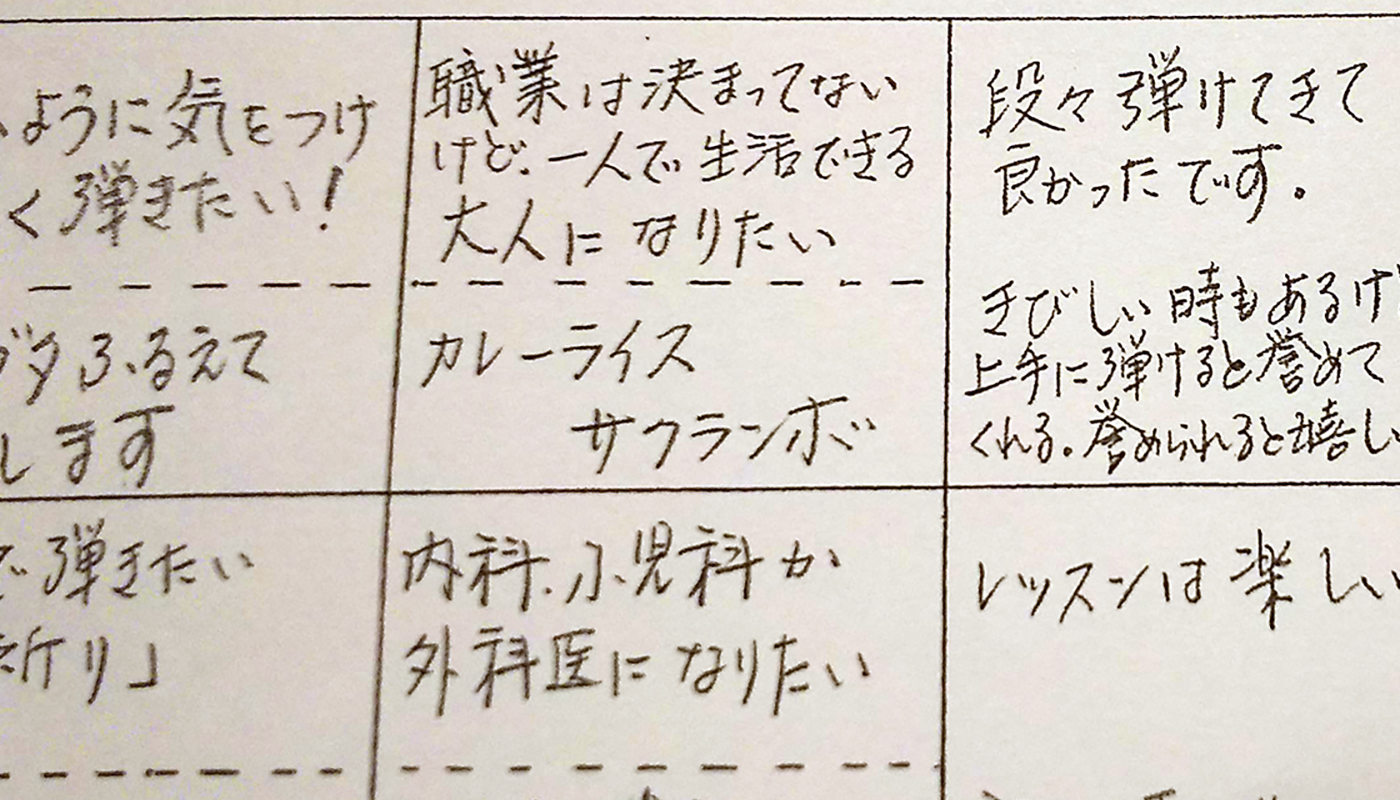 ように気をつけ
く弾きたい!
タふるえて
します
弾きたい
祈り」
職業は決まってない
けど、一人で生活できる
大人になりたい
カレーライス
サクランボ
内科、小児科か
外科医になりたい
段々弾けてきて
良かったです。
きびしい時もあるけ
上手に弾けると誉めて
くれる。誉められると嬉し
レッスンは楽しい